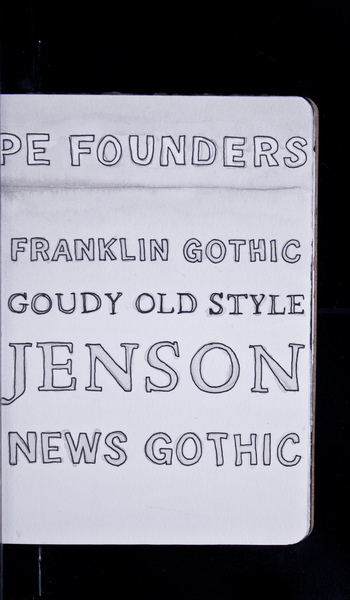 PE FOUNDERS
FRANKLIN GOTHIC
GOUDY OLD STYLE
JENSON
NEWS GOTHIC